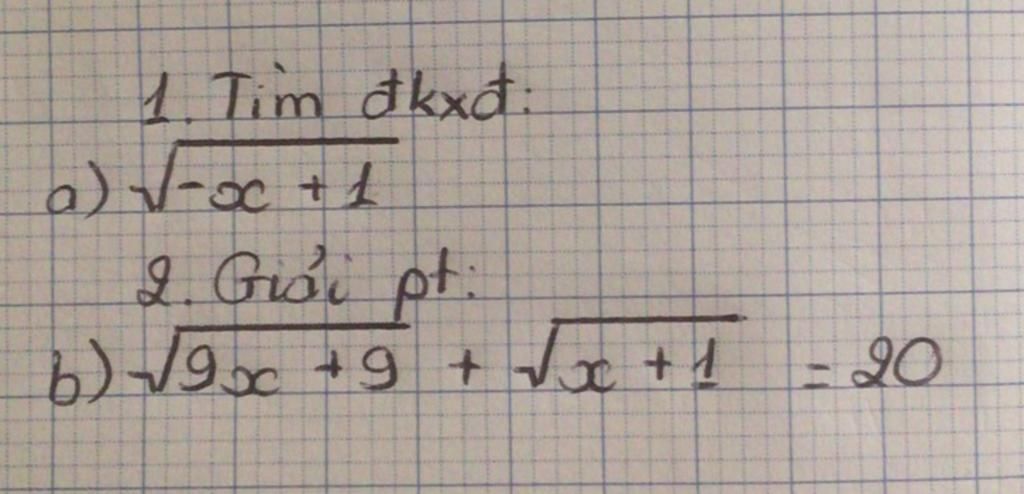 1. Tìm đkxđ:
a) √(-x + 1)
2. Giải pt:
b) √(9x + 9) + √(x + 1) = 20